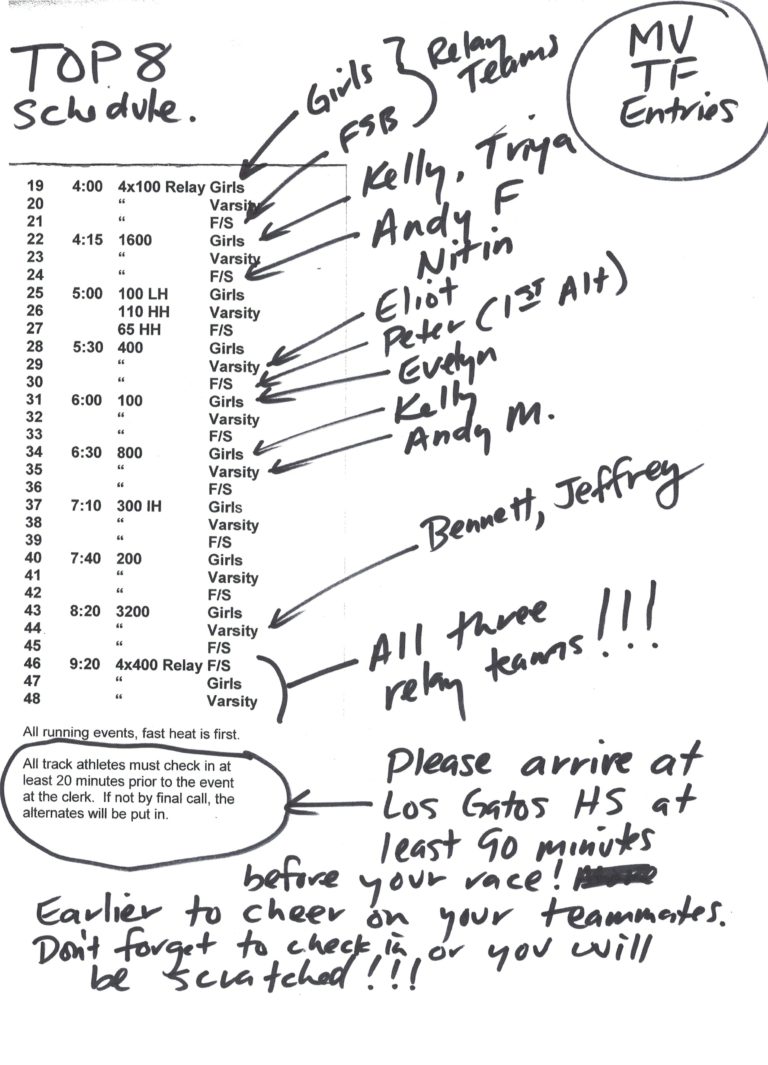 TOP 8
Schedule.
MV
TF
Entries
Girls
FSB
Relay
Teams
Kelly, Triya
Andy F
Nitin
Eliot
Peter (1ST Alt)
Evelyn
Kelly
Andy M.
Bennett, Jeffrey
All three
relay teams!!!
19 4:00 4x100 Relay Girls
20 “ Varsity
21 “ F/S
22 4:15 1600 Girls
23 “ Varsity
24 “ F/S
25 5:00 100 LH Girls
26 110 HH Varsity
27 65 HH F/S
28 5:30 400 Girls
29 “ Varsity
30 “ F/S
31 6:00 100 Girls
32 “ Varsity
33 “ F/S
34 6:30 800 Girls
35 “ Varsity
36 “ F/S
37 7:10 300 IH Girls
38 “ Varsity
39 “ F/S
40 7:40 200 Girls
41 “ Varsity
42 “ F/S
43 8:20 3200 Girls
44 “ Varsity
45 “ F/S
46 9:20 4x400 Relay F/S
47 “ Girls
48 “ Varsity
All running events, fast heat is first.
All track athletes must check in at
least 20 minutes prior to the event
at the clerk. If not by final call, the
alternates will be put in.
Please arrive at
Los Gatos HS at
least 90 minutes
before your race!
Earlier to cheer on your teammates.
Don't forget to check in or you will
be scratched!!!